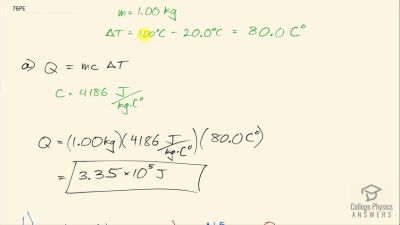 76PE
m = 1.00 kg
ΔT = 100°C - 20.0°C = 80.0 C°
a) Q = mc ΔT
c = 4186 J/kg·C°
Q = (1.00 kg)(4186 J/kg·C°)(80.0 C°)
= 3.35 × 10⁵ J
College Physics
ANSWERS